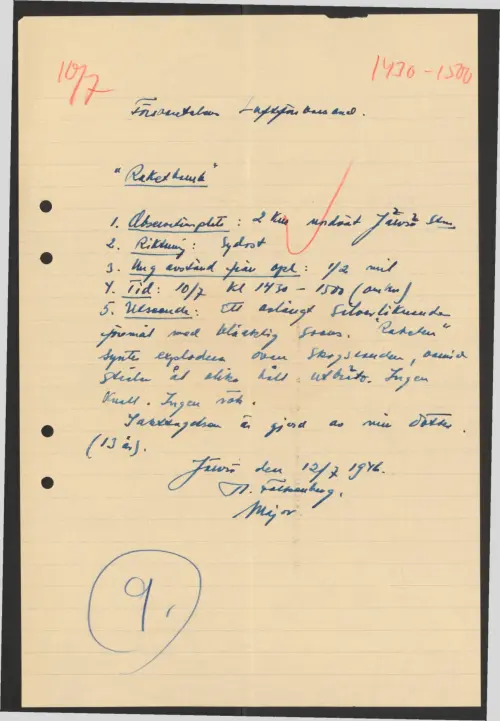 10/7
1430-1500
Försvarsstaben Luftförsvarsavd.
"Raketbomb"
1. Observationsplats: 2 km nordväst Järvsö Stn
2. Riktning: Sydost
3. Ung avstånd från opl: 1/2 mil
4. Tid: 10/7 kl 1430 - 1500 (onsdag)
5. Utseende: Ett avlångt silverliknande
föremål med blåaktig svans. "Raketen"
syntes explodera över skogsranden, varvid
delar åt olika håll. Ingen
knall. Ingen rök.
Iakttagelsen är gjord av min dotter.
(13 år).
Järvsö den 12/7 1946.
Falkenberg.
Major
9.